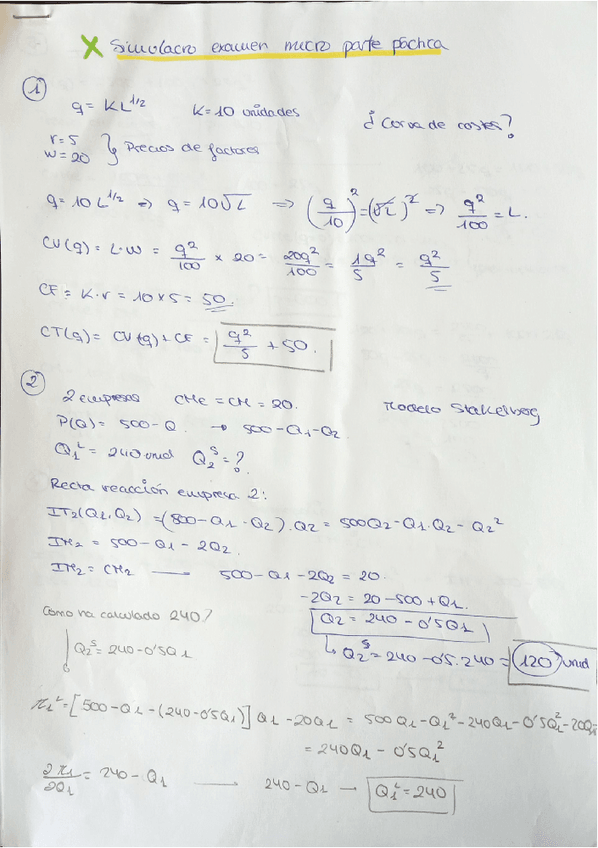 X Simulacro examen micro parte páctica
1
q = KL^1/2 K = 10 unidades ¿Curva de costes?
r = 5
w = 20 } Precios de factores
q = 10 L^1/2 => q = 10√L => (q/10)^2 = (√L)^2 => q^2/100 = L.
CV(q) = L·W = q^2/100 × 20 = 20q^2/100 = 1q^2/5 = q^2/5
CF = K·r = 10×5 = 50.
CT(q) = CV(q) + CF = q^2/5 + 50.
2
2 empresas CMe = CM = 20. Modelo Stakelberg
P(Q) = 500 - Q → 500 - Q1 - Q2
Q1^L = 240 unid Q2^S = ?
Recta reacción empresa 2:
IT2(Q1,Q2) = (500 - Q1 - Q2)·Q2 = 500Q2 - Q1·Q2 - Q2^2
IM2 = 500 - Q1 - 2Q2.
IM2 = CM2 —— 500 - Q1 - 2Q2 = 20.
-2Q2 = 20 - 500 + Q1.
Q2 = 240 - 0'5Q1
↳ Q2^S = 240 - 0'5·240 = 120 unid
Como ha calculado 240?
Q2^S = 240 - 0'5Q1
π1^L = [500 - Q1 - (240 - 0'5Q1)] Q1 - 20Q1 = 500Q1 - Q1^2 - 240Q1 - 0'5Q1^2 - 20Q1
= 240Q1 - 0'5Q1^2
∂π1/∂Q1 = 240 - Q1 —— 240 - Q1 → Q1^L = 240